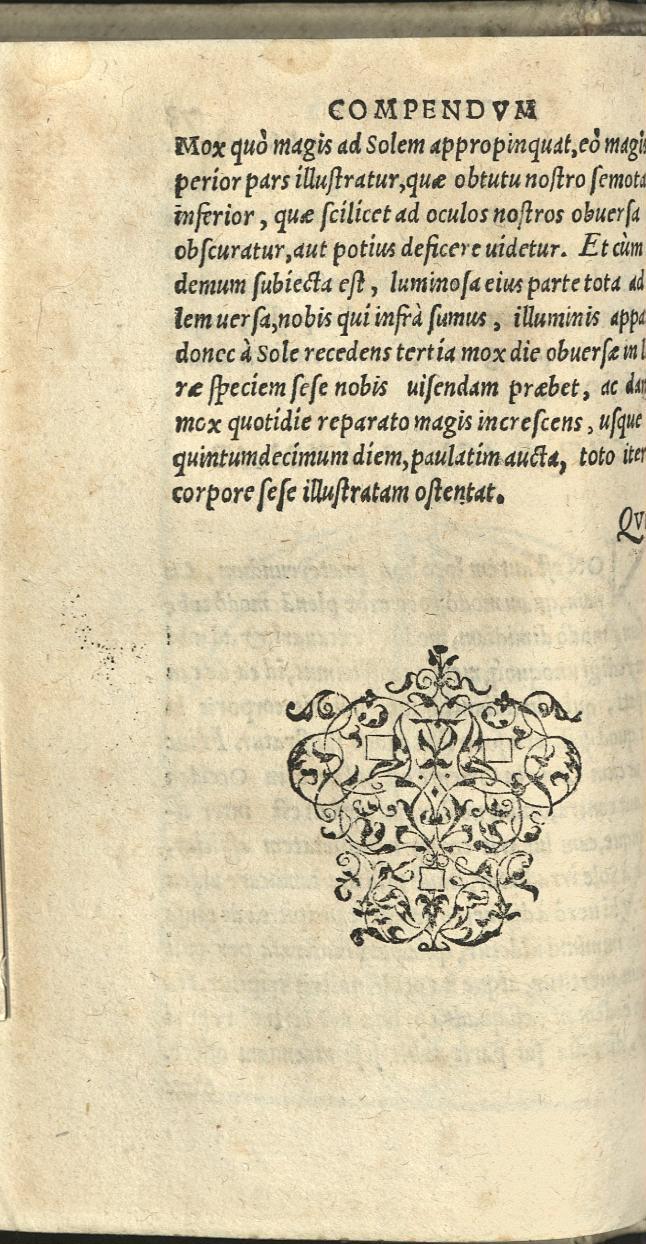 COMPENDVM
Mox quò magis ad Solem appropinquat, eò magis
perior pars illuſtratur, quæ obtutu noſtro ſemota
inferior, quæ ſcilicet ad oculos noſtros obuerſa
obſcuratur, aut potius deficere uidetur. Et cùm
demum ſubiecta eſt, luminoſa eius parte tota ad
lem uerſa, nobis qui infrà ſumus, illuminis appa
donec à Sole recedens tertia mox die obuerſæ in l
ræ ſpeciem ſeſe nobis uiſendam præbet, ac dam
mox quotidie reparato magis increſcens, uſque
quintumdecimum diem, paulatim aucta, toto iter
corpore ſeſe illuſtratam oſtentat.
QV